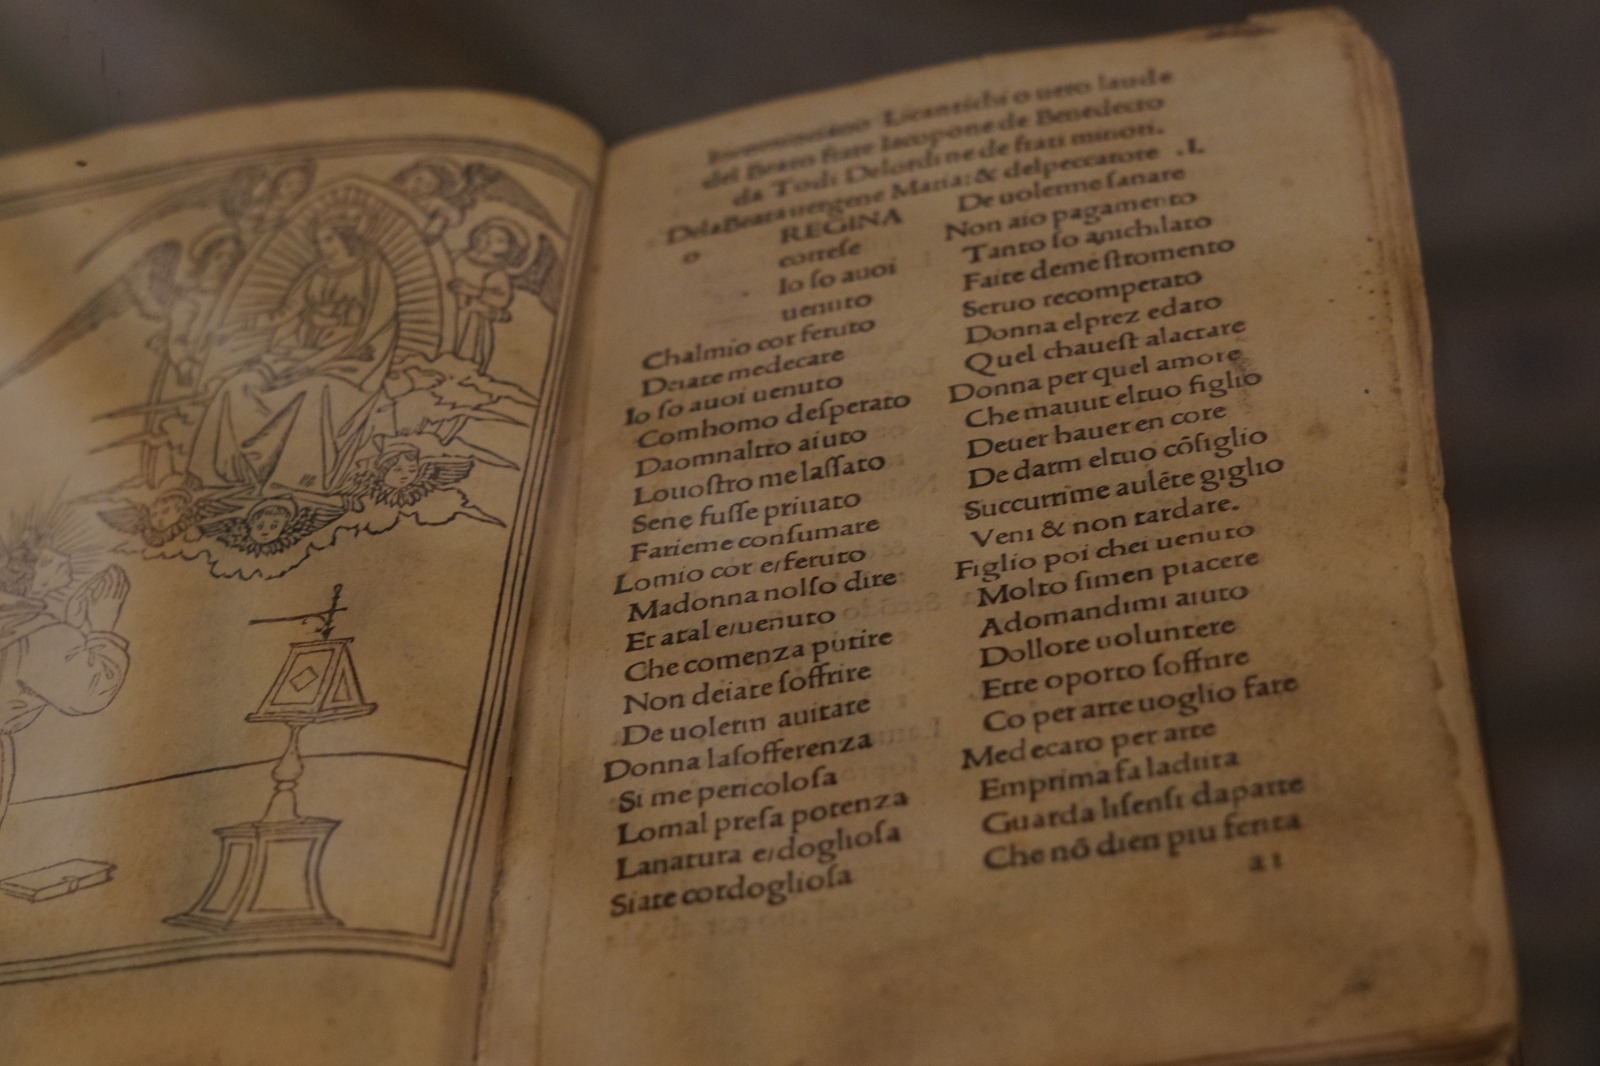 Incominciano Licantichi o uero laude
del Beato frate Iacopone de Benedecto
da Todi Delordine de frati minori.
Dela Beata uergene Maria: & delpeccatore .I.
o
REGINA
correſe
Io ſo auoi
uenuto
Chalmio cor feruto
Deiate medecare
Io ſo auoi uenuto
Comhomo deſperato
Daomnaltro aiuto
Louoſtro me laſſato
Sene fuſſe priuato
Farieme conſumare
Lomio cor e/feruto
Madonna nolſo dire
Et atal e/uenuto
Che comenza putire
Non deiate ſoffrire
De uolerm auitare
Donna laſofferenza
Si me pericoloſa
Lomal preſa potenza
Lanatura e/doglioſa
Siate cordoglioſa
De uolerme ſanare
Non aio pagamento
Tanto ſo anichilato
Faite demе ſtromento
Seruo recomperato
Donna elprez edato
Quel chaueſt alactare
Donna per quel amore
Che mauut eltuo figlio
Deuer hauer en core
De darm eltuo cōſiglio
Succurrime aulēte giglio
Veni & non tardare.
Figlio poi chei uenuto
Molto ſimen piacere
Adomandimi aiuto
Dollote uoluntere
Ette oporto ſoffrire
Co per arte uoglio fare
Medecaro per arte
Emprima fa ladiita
Guarda liſenſi daparte
Che nō dien piu ferita
a I